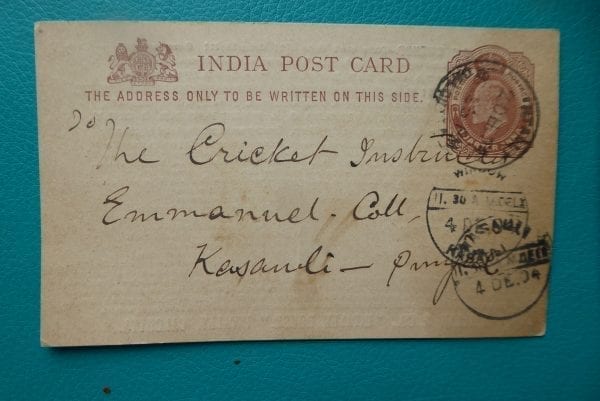 INDIA POST CARD
THE ADDRESS ONLY TO BE WRITTEN ON THIS SIDE.
To
The Cricket Instructor
Emmanuel. Coll,
Kasauli —
WINDOW
11. 30 A
4 DE. 04
4 DE. 04